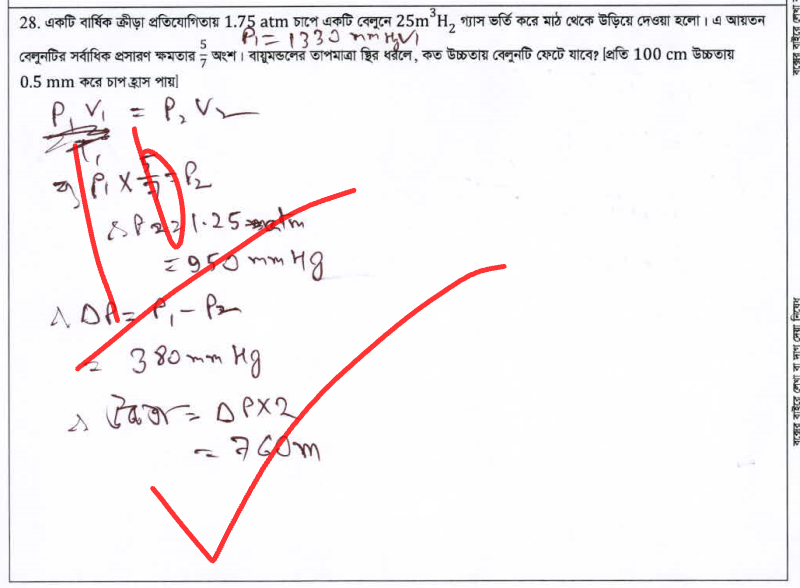 28. একটি বার্ষিক ক্রীড়া প্রতিযোগিতায় 1.75 atm চাপে একটি বেলুনে 25m³H₂ গ্যাস ভর্তি করে মাঠ থেকে উড়িয়ে দেওয়া হলো। এ আয়তন
P₁ = 1330 mmHg V₁
বেলুনটির সর্বাধিক প্রসারণ ক্ষমতার 5/7 অংশ। বায়ুমন্ডলের তাপমাত্রা স্থির ধরলে, কত উচ্চতায় বেলুনটি ফেটে যাবে? [প্রতি 100 cm উচ্চতায়
0.5 mm করে চাপ হ্রাস পায়]
P₁ V₁ = P₂ V₂
T₁
⇒ P₁ × 5/7 = P₂
∴ P₂ = 1.25 atm
= 950 mm Hg
∴ ΔP = P₁ − P₂
= 380 mm Hg
∴ উচ্চতা = ΔP × 2
= 760m
বক্সের বাইরে লেখা বা দাগ দেয়া নিষেধ